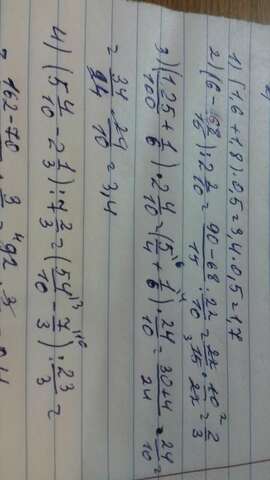 1) (1,6+1,8)·0,5=3,4·0,5=1,7
2) (6-68/15):2 2/10=90-68/15:22/10=22/15·10/22=2/3
3) (1 25/100+1/6)·2 4/10=(5/4+1/6)·24/10=30+4/24·24/10=
=34/24·24/10=3,4
4) (5 4/10-2 1/3):7 2/3=(54/10-7/3):23/3=
162-70